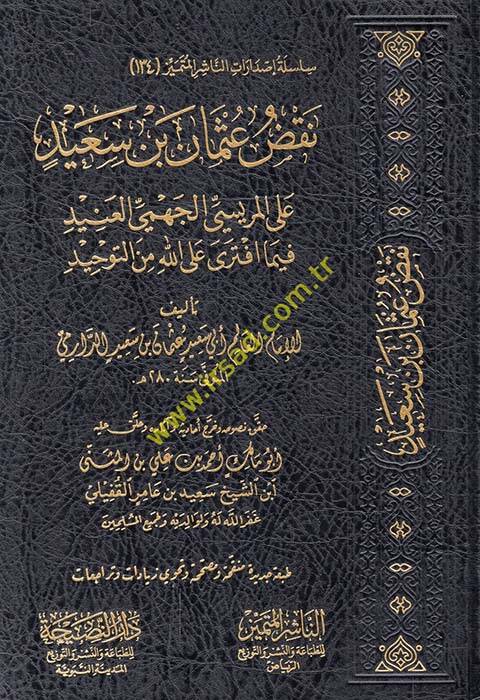 سلسلة إصدارات الناشر المتميز (١٣٤)
نقض عثمان بن سعيد
على المريسي الجهمي العنيد
فيما افترى على الله من التوحيد
تأليف
الإمام أبي سعيد عثمان بن سعيد الدارمي
سنة ٢٨٠ هـ.
حقق نصوصه وخرج أحاديثه وعلق عليه
أبو مالك أحمد بن علي بن المثنى
ابن الشيخ سعيد بن عامر القفيلي
غفر الله له ولوالديه ولجميع المسلمين
طبعة جديدة منقحة ومصححة وتحوي زيادات وتراجعات
الناشر المتميز
للطباعة والنشر والتوزيع
الرياض
دار النصيحة
للطباعة والنشر والتوزيع
المدينة النبوية
نقض عثمان بن سعيد
www.irsad.com.tr